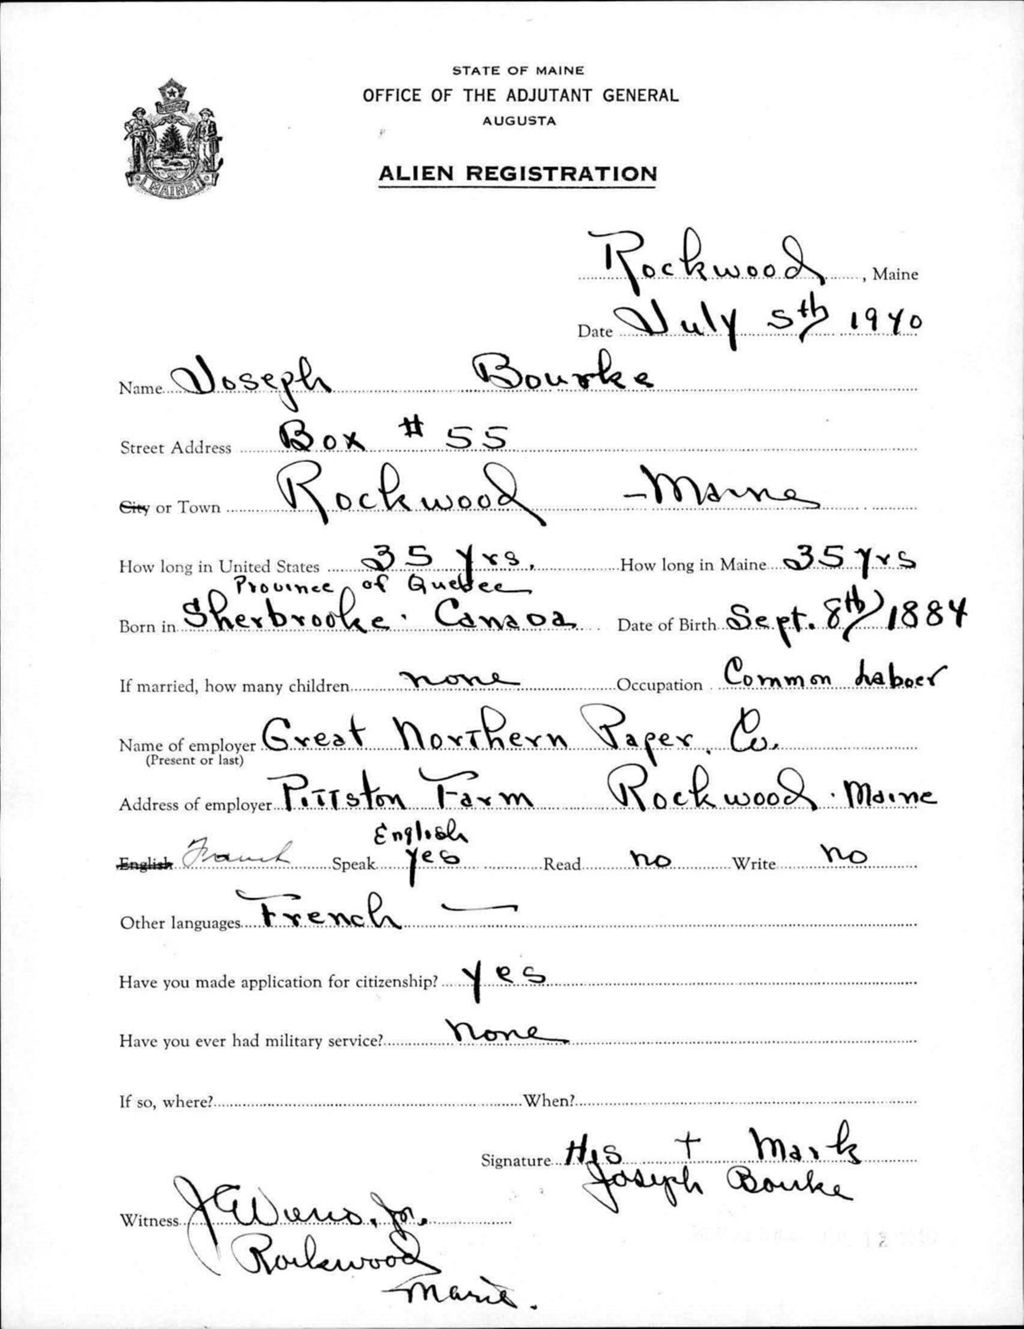 STATE OF MAINE
OFFICE OF THE ADJUTANT GENERAL
AUGUSTA
ALIEN REGISTRATION
MAINE
Rockwood, Maine
Date July 5th 1940
Name Joseph Bourke
Street Address Box # 55
City or Town Rockwood - Maine
How long in United States 35 yrs. How long in Maine 35 yrs
Province of Quebec
Born in Sherbrooke. Canada Date of Birth Sept. 8th/1884
If married, how many children none Occupation Common Laborer
Name of employer Great Northern Paper Co.
(Present or last)
Address of employer Pittston Farm Rockwood. Maine
English
English French Speak yes Read no Write no
Other languages French —
Have you made application for citizenship? yes
Have you ever had military service? None
If so, where? When?
Signature His + Mark
Joseph Bourke
Witness Jr.
Rockwood
Maine.